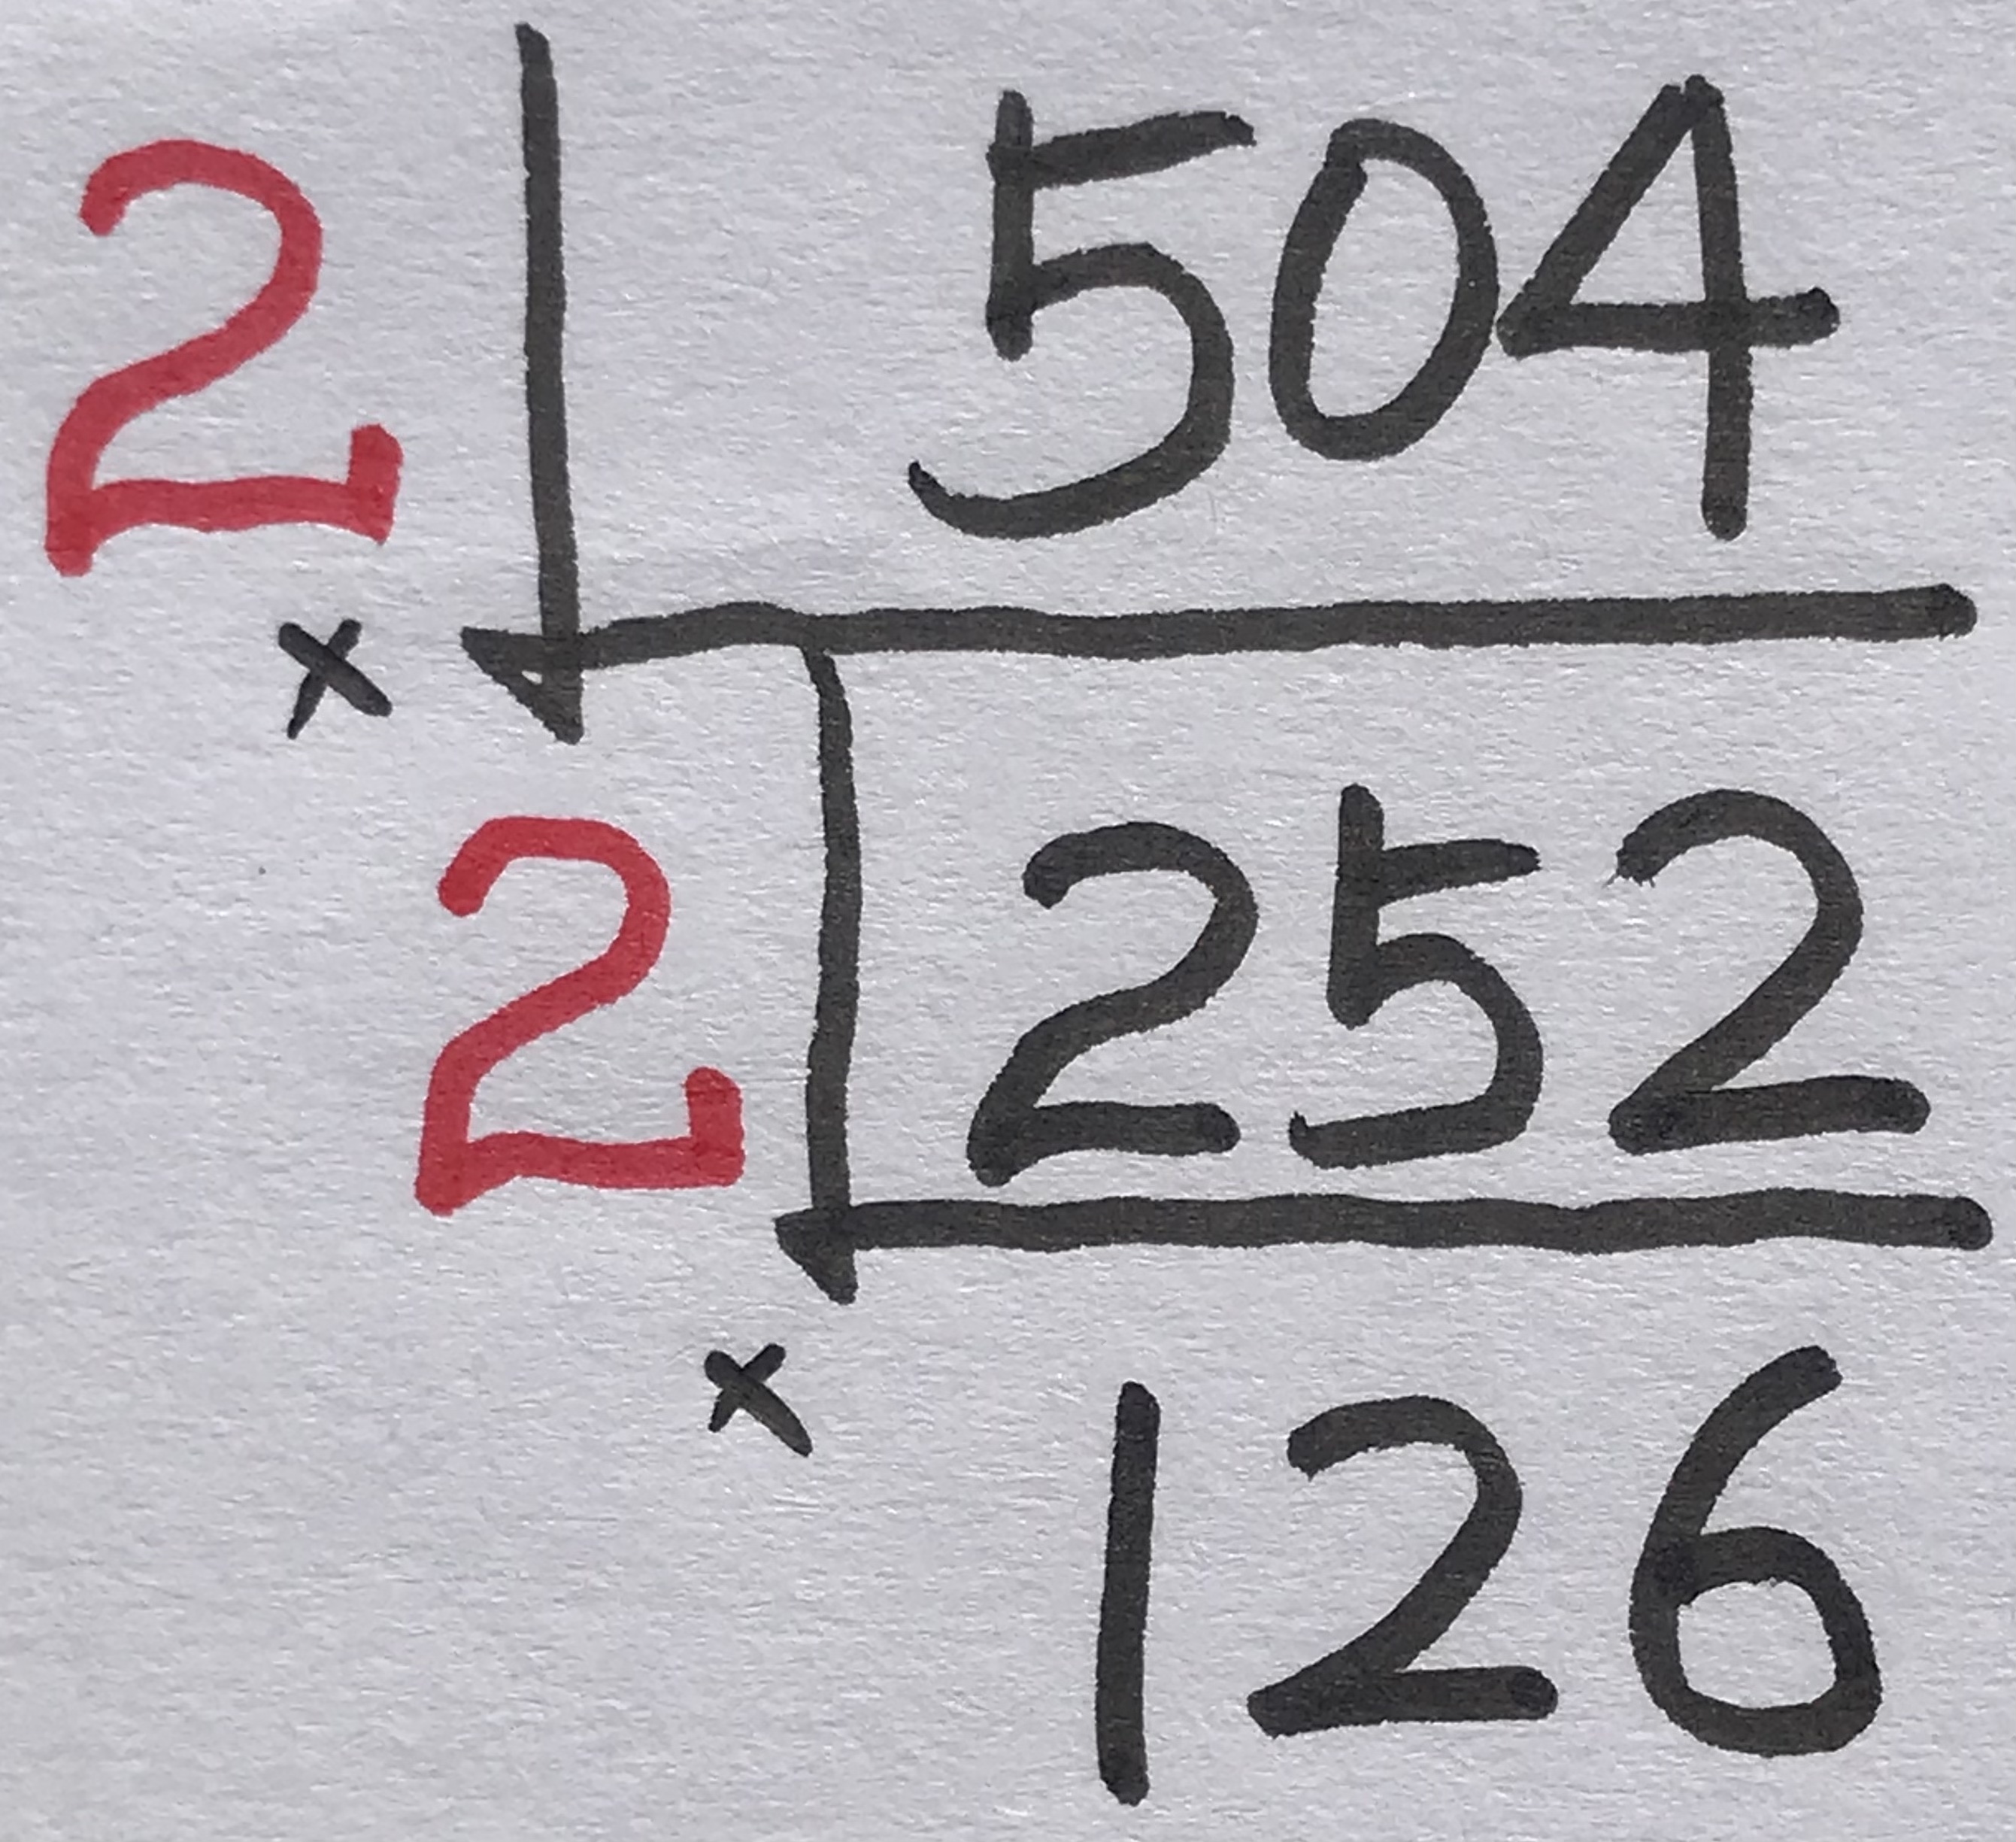 2 504
×
2 252
×
126